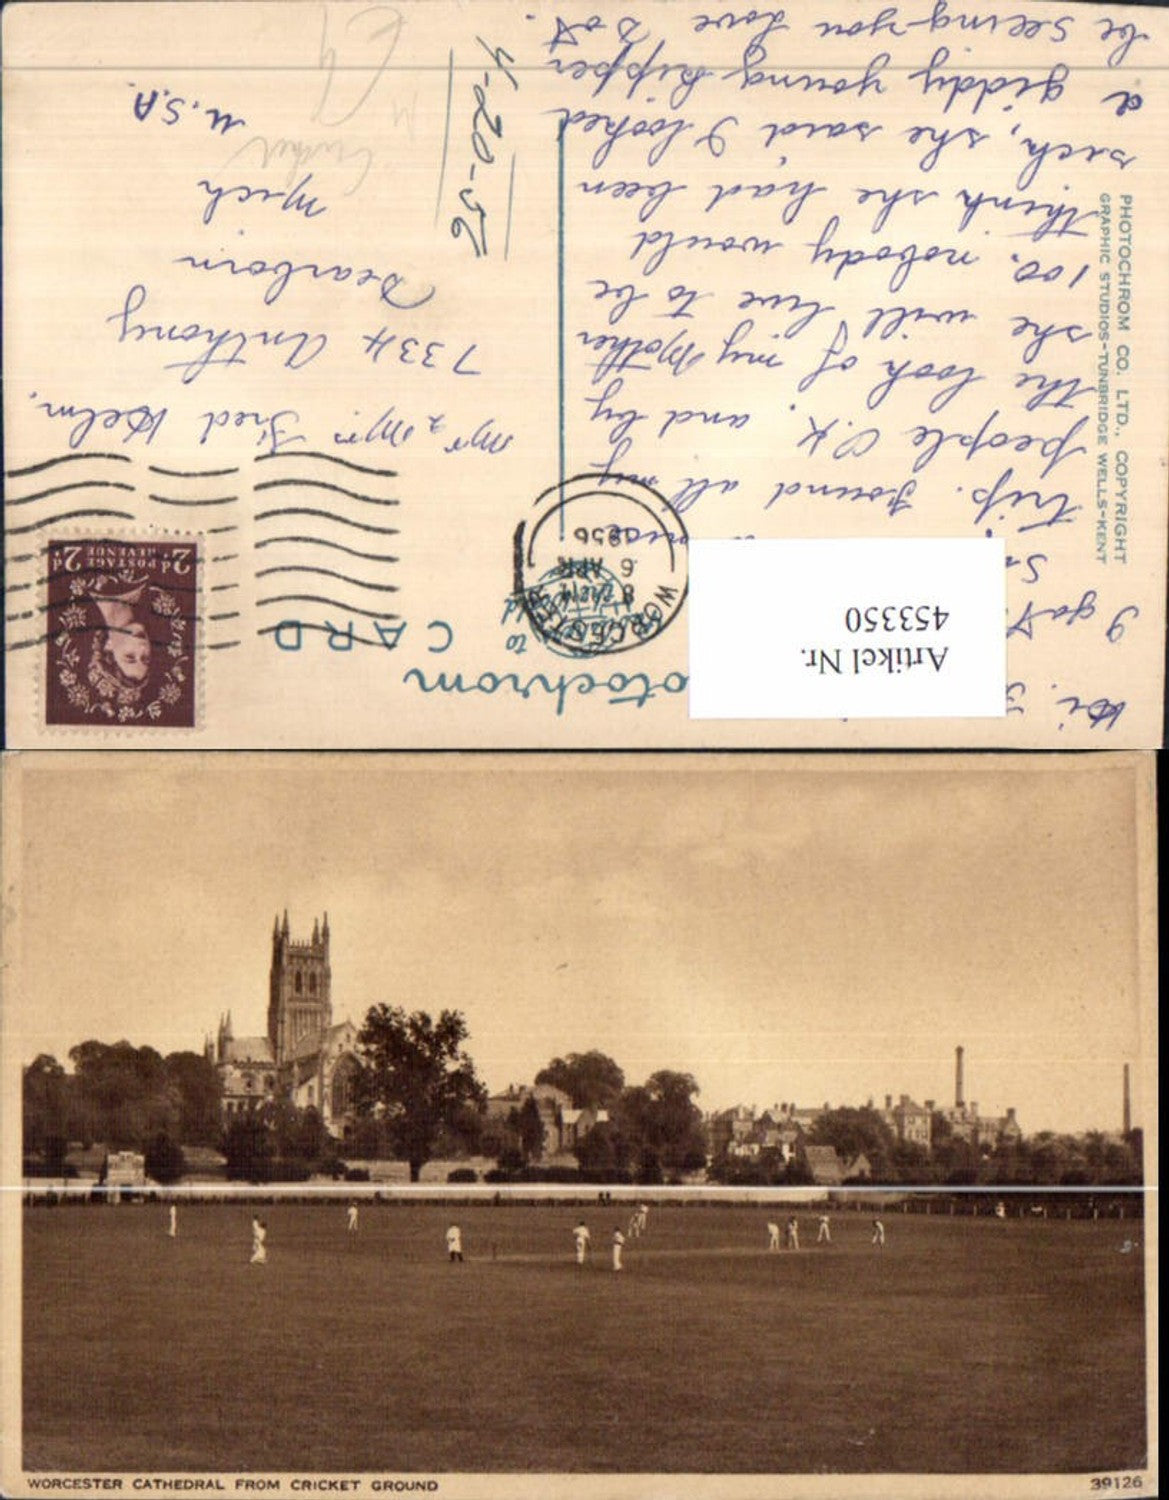 Photochrom
CARD
Artikel Nr.
453350
Hi.
I got
trip. Found all my
people O.K. and by
the look of my Mother
she will live to be
100. nobody would
think she had been
sick, she said I looked
a giddy young kipper
be seeing-you Love Dot.
PHOTOCHROM CO. LTD., COPYRIGHT
GRAPHIC STUDIOS-TUNBRIDGE WELLS-KENT
8
6 APR
1956
2d POSTAGE REVENUE 2d
Mr & Mrs Fred Helm.
7334 Anthony
Dearborn
Mich
U.S.A.
4-20-56
Cricket
WORCESTER CATHEDRAL FROM CRICKET GROUND
39126